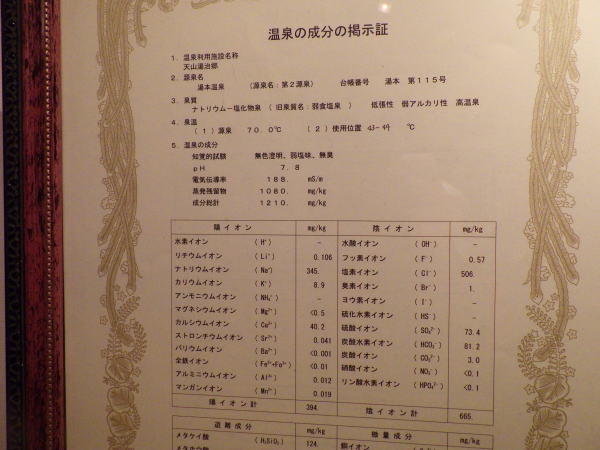 温泉の成分の掲示証
1．温泉利用施設名称
天山湯治郷
2．源泉名
湯本温泉 （源泉名：第２源泉） 台帳番号 湯本 第１１５号
3．泉質
ナトリウムー塩化物泉 （旧泉質名：弱食塩泉 ） 低張性 弱アルカリ性 高温泉
4．泉温
（１）源泉 ７０．０℃ （２）使用位置 43-44 ℃
5．温泉の成分
知覚的試験 無色澄明、弱塩味、無臭
ｐＨ ７．８
電気伝導率 １８８． mS/m
蒸発残留物 １０８０． mg/kg
成分総計 １２１０． mg/kg
陽イオン mg/kg 陰イオン mg/kg
水素イオン （H⁺） － 水酸イオン （OH⁻） －
リチウムイオン （Li⁺） 0.106 フッ素イオン （F⁻） 0.57
ナトリウムイオン （Na⁺） 345. 塩素イオン （Cl⁻） 506.
カリウムイオン （K⁺） 8.9 臭素イオン （Br⁻） 1.
アンモニウムイオン （NH₄⁺） － ヨウ素イオン （I⁻） －
マグネシウムイオン （Mg²⁺） <0.5 硫化水素イオン （HS⁻） －
カルシウムイオン （Ca²⁺） 40.2 硫酸イオン （SO₄²⁻） 73.4
ストロンチウムイオン （Sr²⁺） 0.041 炭酸水素イオン （HCO₃⁻） 81.2
バリウムイオン （Ba²⁺） <0.001 炭酸イオン （CO₃²⁻） 3.0
全鉄イオン （Fe²⁺+Fe³⁺） <0.01 硝酸イオン （NO₃⁻） <0.1
アルミニウムイオン （Al³⁺） 0.012 リン酸水素イオン （HPO₄²⁻） <0.1
マンガンイオン （Mn²⁺） 0.019
陽イオン計 394. 陰イオン計 665.
遊離成分 mg/kg 微量成分 mg/kg
メタケイ酸 （H₂SiO₃） 124. 銅イオン
メタホウ酸